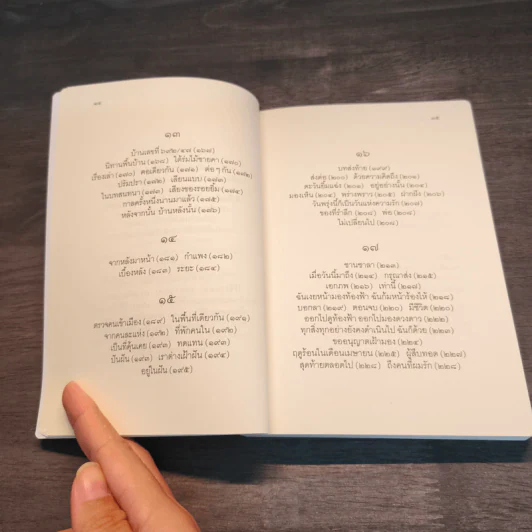 ๑๓
บ้านเลขที่ ๖๙๒/๔๗ (๑๖๗)
นิทานพื้นบ้าน (๑๖๘) ใต้ร่มไม้ชายคา (๑๗๐)
เรื่องเล่า (๑๗๐) คอเดียวกัน (๑๗๑) ต่อ ๆ กัน (๑๗๑)
ปริ่มปรา (๑๗๒) เลียนแบบ (๑๗๓)
ในบทสนทนา (๑๗๓) เสียงของรอยยิ้ม (๑๗๔)
กาลครั้งหนึ่งนานมาแล้ว (๑๗๕)
หลังจากนั้น บ้านหลังนั้น (๑๗๖)
๑๔
จากหลังมาหน้า (๑๘๑) กำแพง (๑๘๒)
เบื้องหลัง (๑๘๓) ระยะ (๑๘๔)
๑๕
ตรวจคนเข้าเมือง (๑๘๙) ในพื้นที่เดียวกัน (๑๙๑)
จากคนละแห่ง (๑๙๒) ที่พักคนใน (๑๙๒)
เป็นที่คุ้นเคย (๑๙๓) ทดแทน (๑๙๓)
ปันฝัน (๑๙๓) เราต่างเฝ้าฝัน (๑๙๔)
อยู่ในฝัน (๑๙๕)
๑๖
บทส่งท้าย (๑๙๙)
ส่งต่อ (๒๐๐) ด้วยความคิดถึง (๒๐๑)
ตะวันยิ้มแฉ่ง (๒๐๒) อยู่อย่างนั้น (๒๐๓)
มองเห็น (๒๐๔) พร่างพราว (๒๐๕) ฝากถึง (๒๐๖)
วันพรุ่งนี้ก็เป็นวันแห่งความรัก (๒๐๗)
ของที่รำลึก (๒๐๗) พอ (๒๐๘)
ไม่เปลี่ยนไป (๒๐๘)
๑๗
ชานชาลา (๒๑๓)
เมื่อวันนี้มาถึง (๒๑๔) กรุณาส่ง (๒๑๕)
เอกภพ (๒๑๖) เท่านี้ (๒๑๗)
ฉันเงยหน้ามองท้องฟ้า ฉันก้มหน้าร้องไห้ (๒๑๘)
บอกลา (๒๑๙) ตอนจบ (๒๒๐) มีชีวิต (๒๒๐)
ออกไปดูท้องฟ้า ออกไปมองดวงดาว (๒๒๒)
ทุกสิ่งทุกอย่างยังคงดำเนินไป ฉันก็ด้วย (๒๒๓)
ขออนุญาตเฝ้ามอง (๒๒๔)
ฤดูร้อนในเดือนเมษายน (๒๒๕) ผู้สืบทอด (๒๒๗)
สุดท้ายตลอดไป (๒๒๘) ถึงคนที่ผมรัก (๒๒๘)